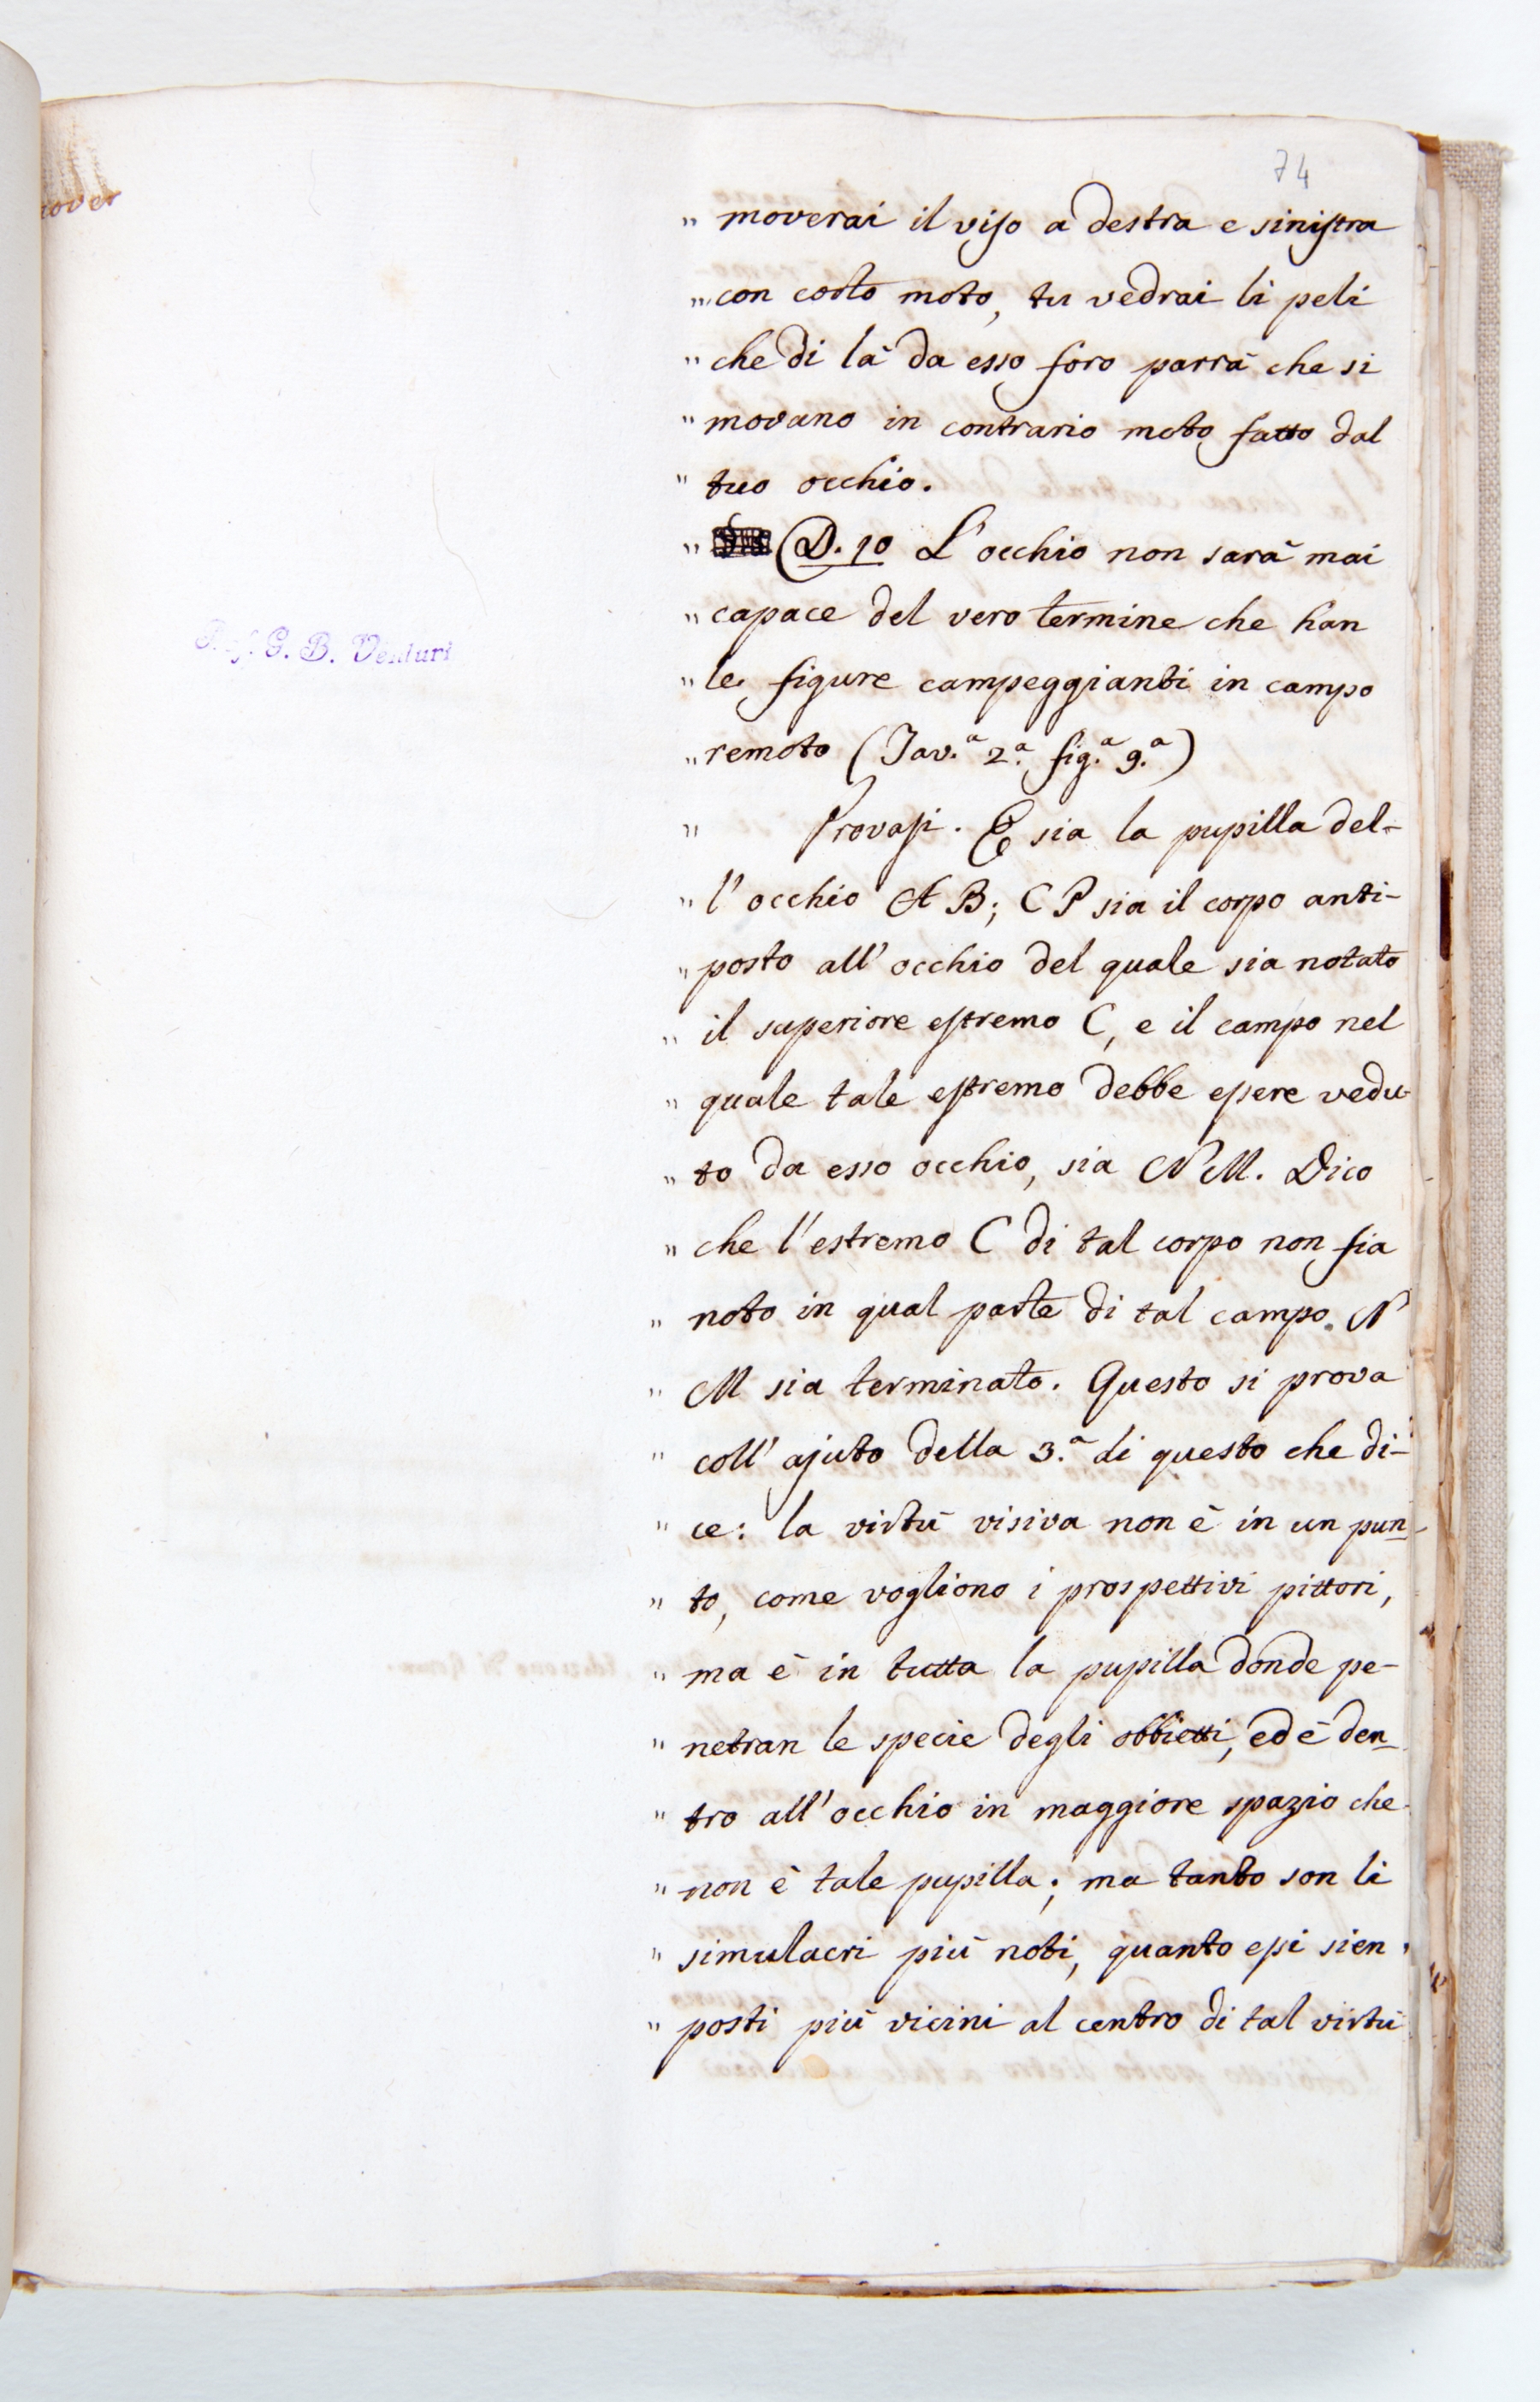 74
" moverai il viso a destra e sinistra
" con corto moto, tu vedrai li peli
" che di là da esso foro parrà che si
" movano in contrario moto fatto dal
" tuo occhio.
" (D. 10 L'occhio non sarà mai
" capace del vero termine che han
" le figure campeggianti in campo
" remoto (Tav.ª 2.ª fig.ª 9.ª)
" Provasi. E sia la pupilla del-
" l'occhio A B; C P sia il corpo anti-
" posto all'occhio del quale sia notato
" il superiore estremo C, e il campo nel
" quale tale estremo debbe essere vedu-
" to da esso occhio, sia N M. Dico
" che l'estremo C di tal corpo non fia
" noto in qual parte di tal campo N
" M sia terminato. Questo si prova
" coll'ajuto della 3.ª di questo che di-
" ce: la virtù visiva non è in un pun-
" to, come vogliono i prospettivi pittori,
" ma è in tutta la pupilla donde pe-
" netran le specie degli obbietti, ed è den-
" tro all'occhio in maggiore spazio che
" non è tale pupilla; ma tanto son li
" simulacri più noti, quanto essi sien
" posti più vicini al centro di tal virtù
G. B. Venturi